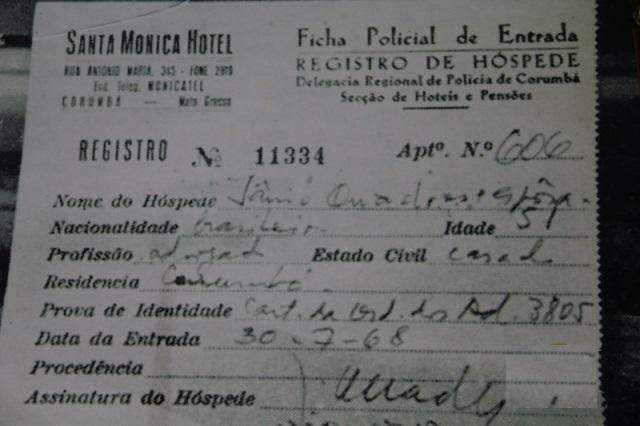 SANTA MONICA HOTEL
RUA ANTONIO MARIA, 345 - FONE 2819
End. Teleg. MONICATEL
CORUMBÁ — Mato Grosso
Ficha Policial de Entrada
REGISTRO DE HÓSPEDE
Delegacia Regional de Polícia de Corumbá
Secção de Hoteis e Pensões
REGISTRO Nº 11334 Aptº. N.º 606
Nome do Hóspede Jânio Quadros + espôsa
Nacionalidade brasileiro Idade 51
Profissão advogado Estado Civil casado
Residencia Corumbá
Prova de Identidade Cart. da Ord. dos Ad. 3805
Data da Entrada 30-7-68
Procedência
Assinatura do Hóspede